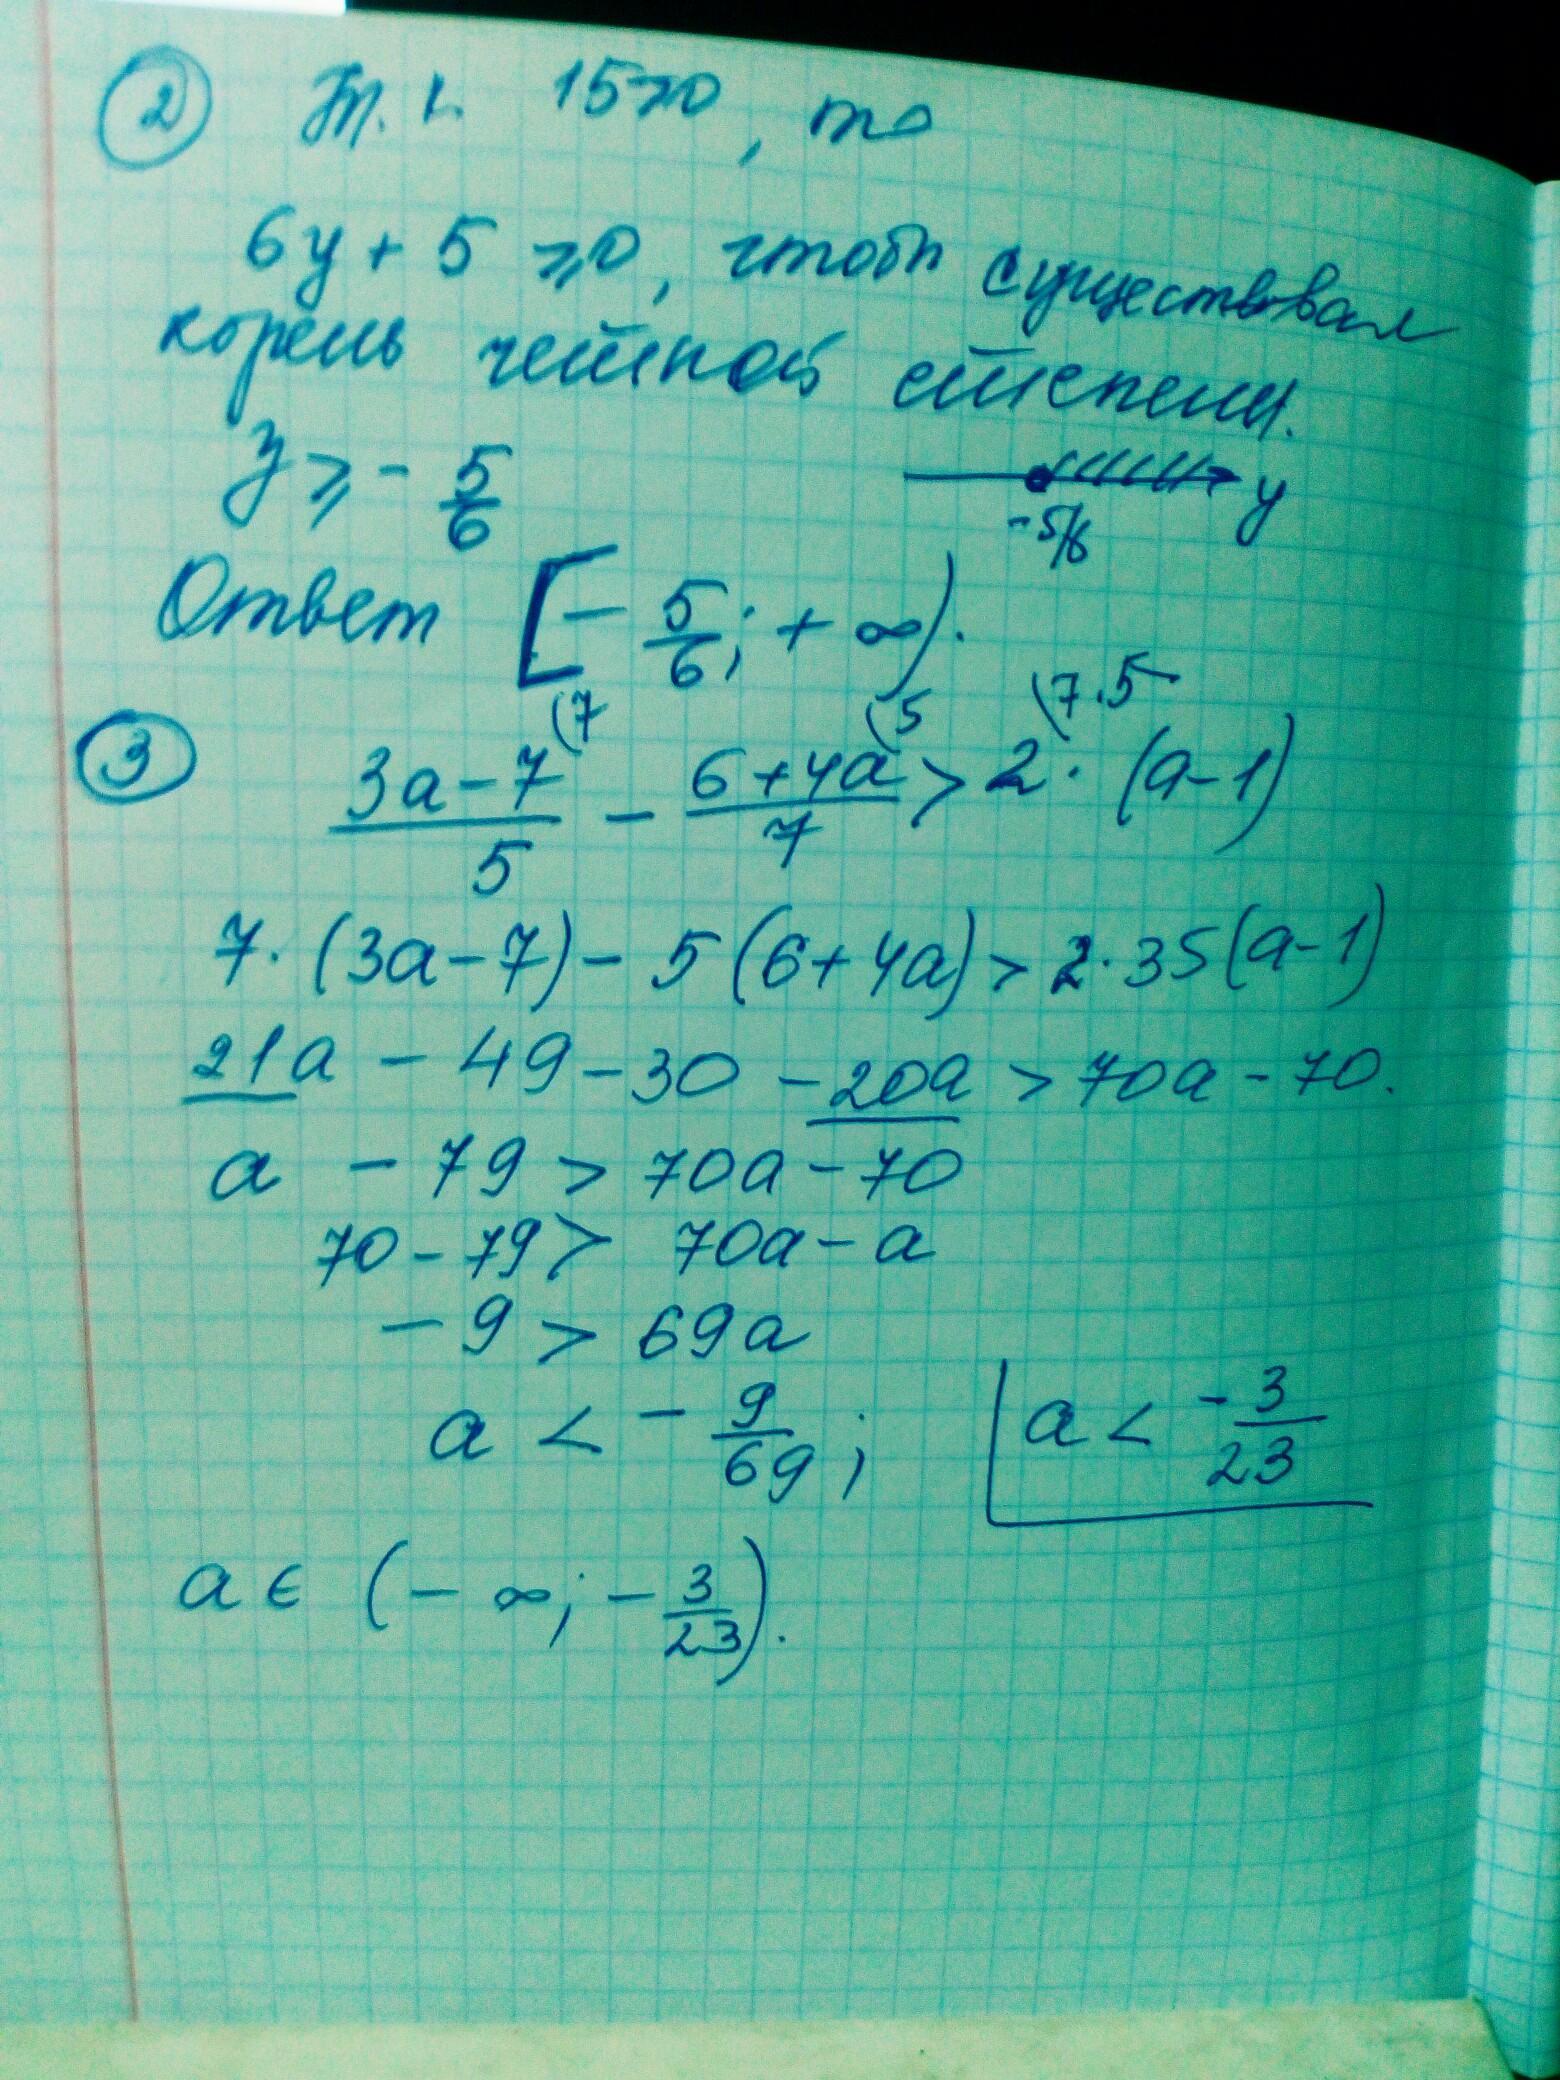 ② Т.к. 15>0, то
6y + 5 ⩾0, чтобы существовал
корень четной степени.
y ⩾ - 5/6
-5/6 y
Ответ [- 5/6; + ∞).
③ (3a-7)/5 (7 - (6+4a)/7 (5 > 2 (7·5 · (a-1)
7·(3a-7) - 5(6+4a) > 2·35(a-1)
21a - 49 - 30 - 20a > 70a - 70.
a - 79 > 70a - 70
70 - 79 > 70a - a
- 9 > 69a
a < - 9/69; a < - 3/23
a ∈ (- ∞; - 3/23).